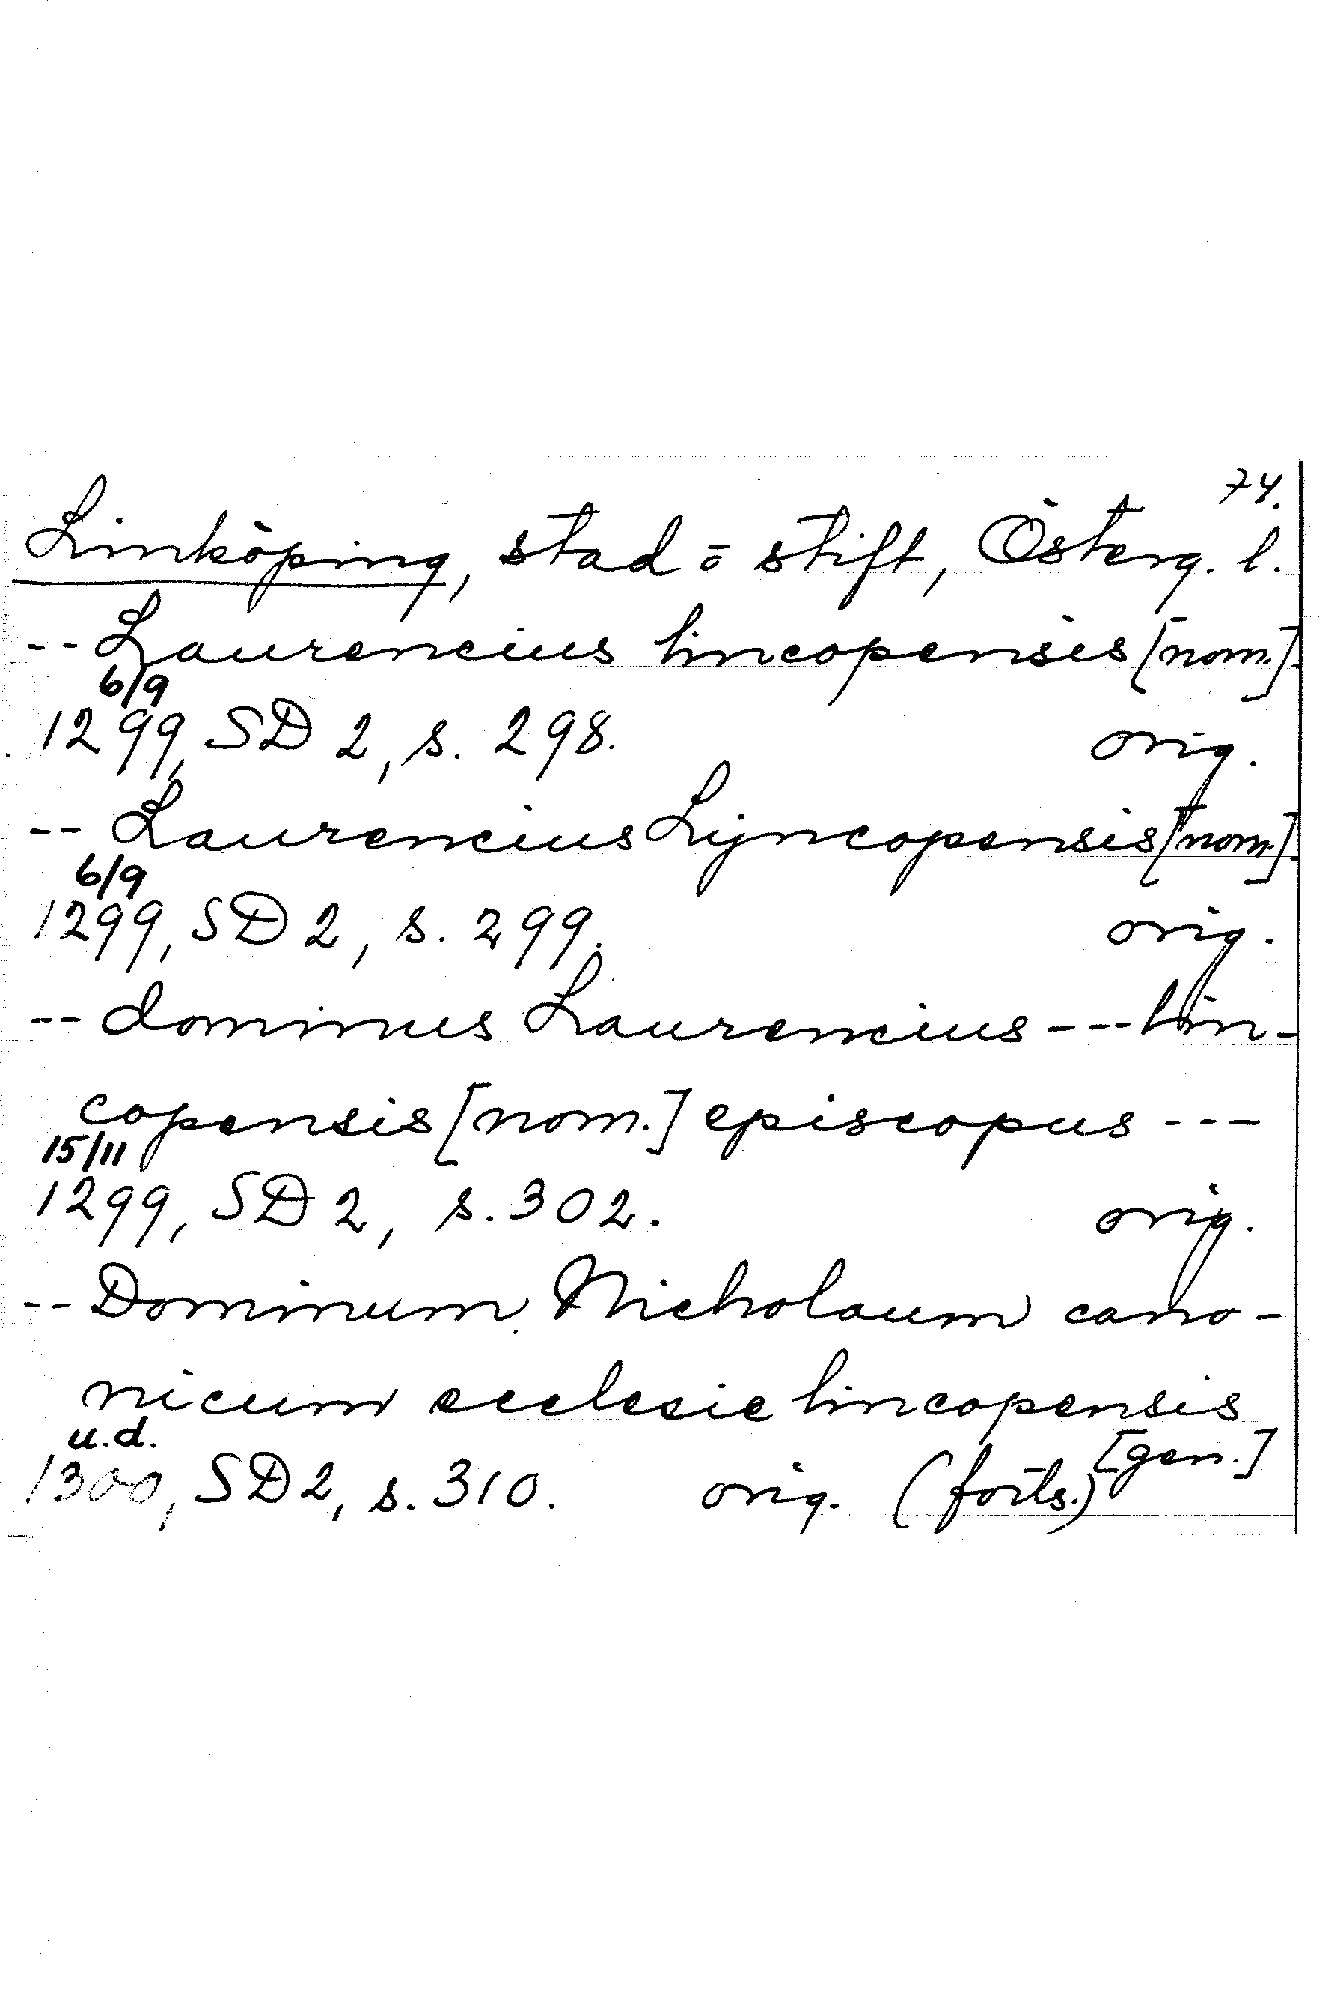 74.
Linköping, stad o stift, Österg. l.
-- Laurencius lincopensis [nom.]
6/9
1299, SD 2, s. 298. orig.
-- Laurencius Lyncopensis [nom.]
6/9
1299, SD 2, s. 299. orig.
-- dominus Laurencius --- lin-
copensis [nom.] episcopus ---
15/11
1299, SD 2, s. 302. orig.
-- Dominum Nicholaum cano-
nicum ecclesie lincopensis
u.d. [gen.]
1300, SD 2, s. 310. orig. (forts.)